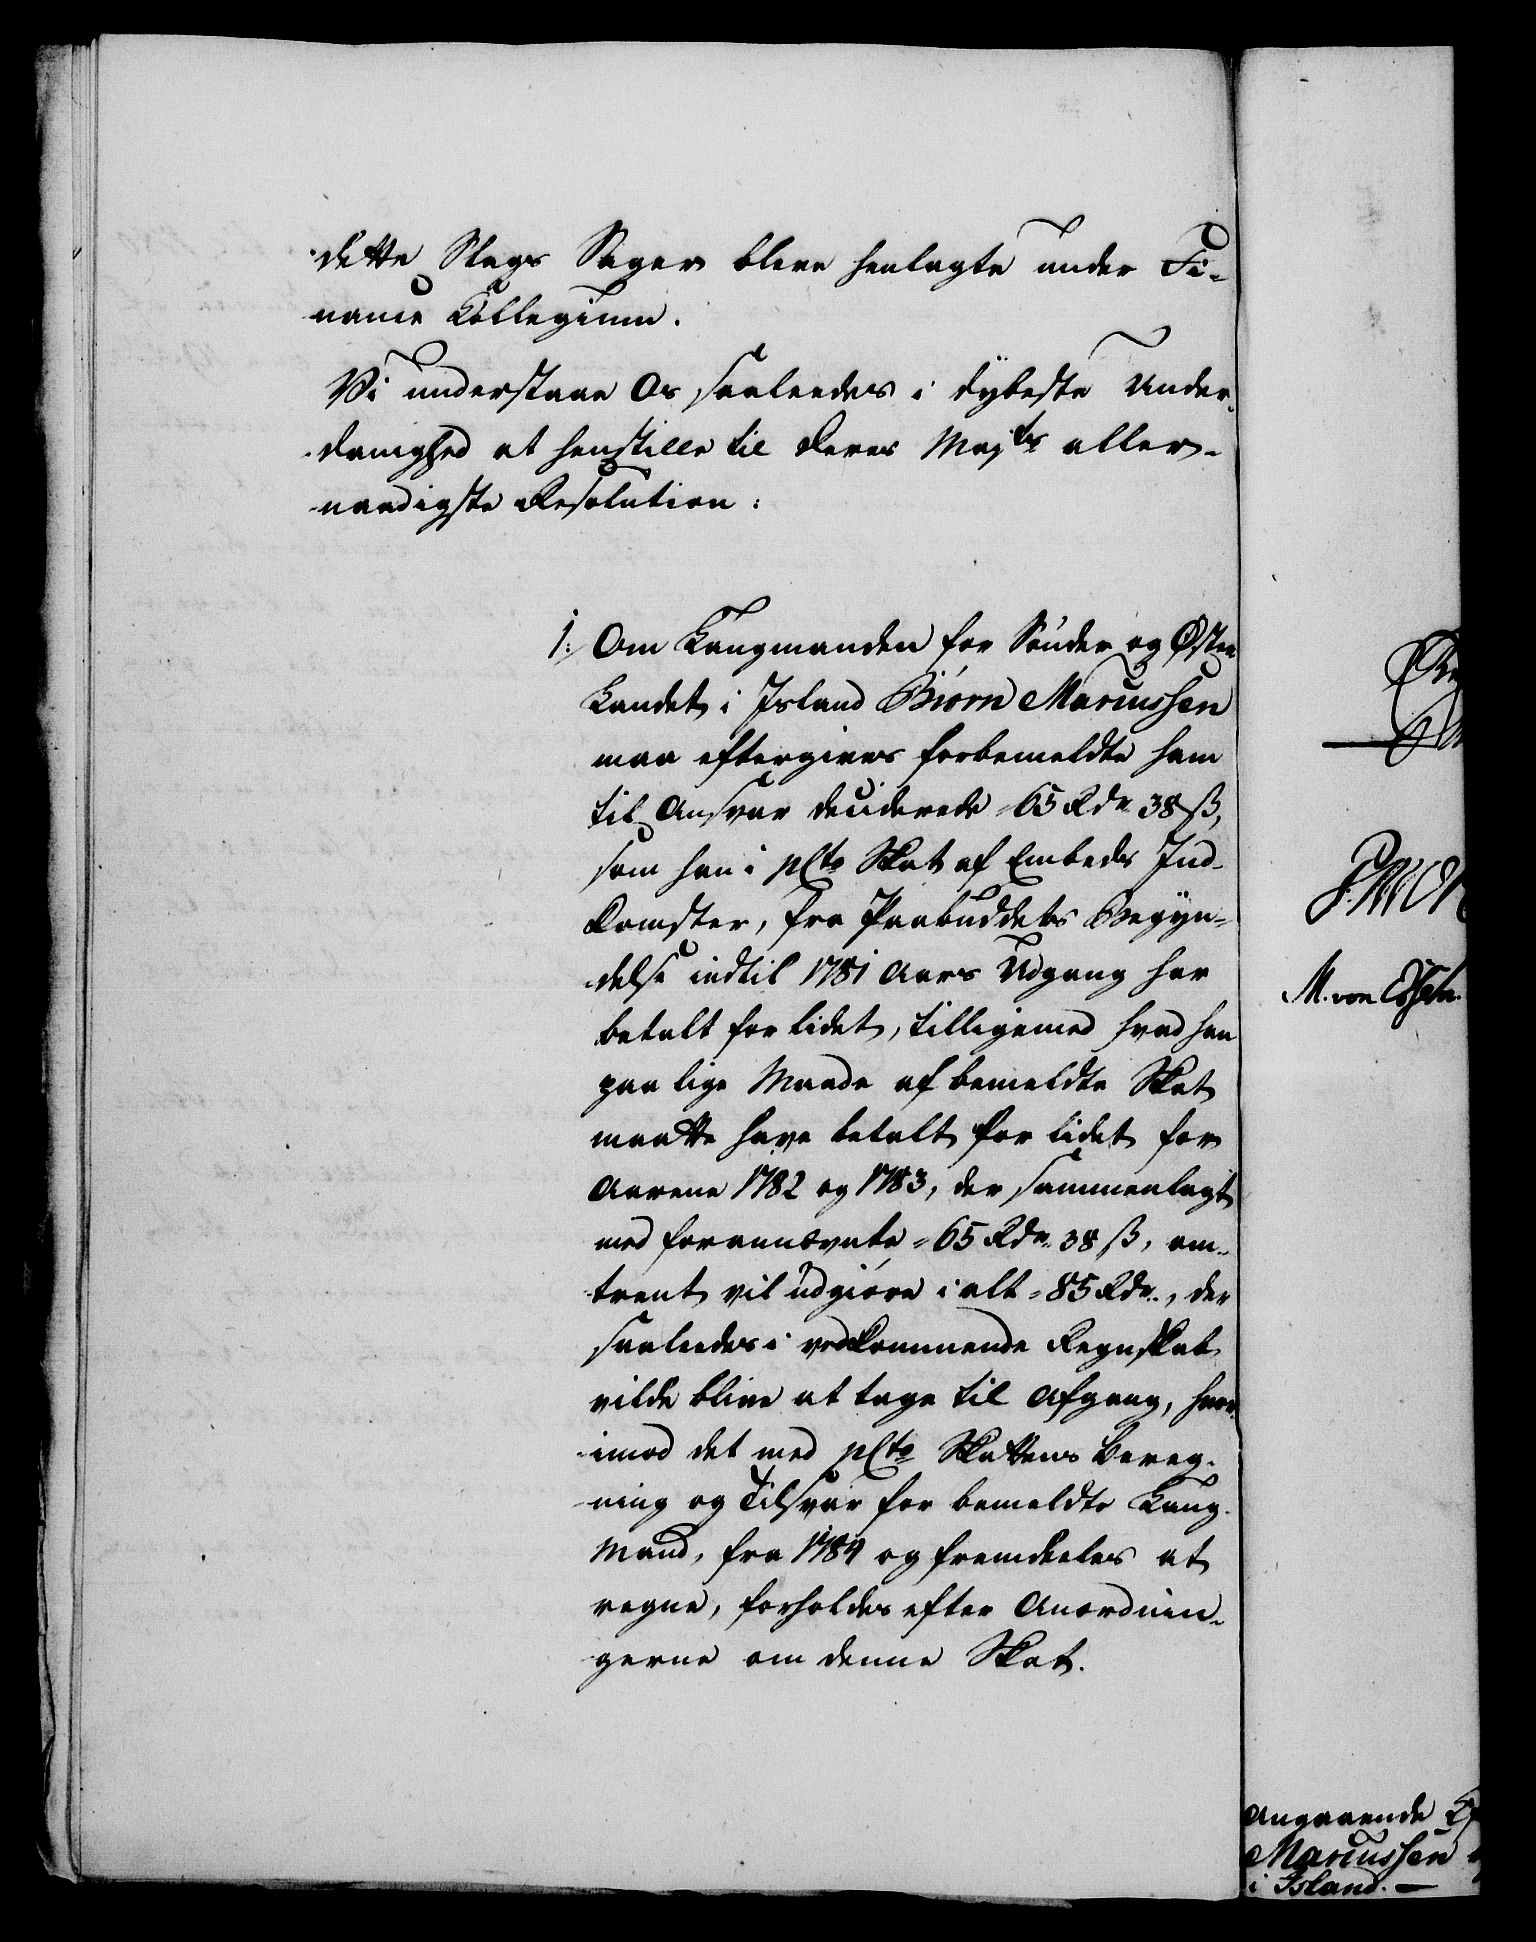 dette Slags Sager bleve henlagte under Fi-
nance Collegium.
Vi understaae Os saaleedes i dybeste Under-
danighed at henstille til Deres Majts aller-
naadigste Resolution:
1. Om Laugmanden for Sønder og Øster
Landet i Island Biørn Marcussen
maa eftergives forbemeldte ham
til Ansvar deciderede 65 Rdr. 38 ß,
som han i pCto Skat af Embeds Ind-
komster, fra Paabuddets Begyn-
delse indtil 1781 Aars Udgang har
betalt for lidet, tilligemed hvad han
paa lige Maade af bemeldte Skat
maatte have betalt for lidet for
Aarene 1782 og 1783, der sammenlagt
med foranrørte 65 Rdr. 38 ß, om-
trent vil udgiøre i alt 85 Rdr., der
saaleedes i vedkommende Regnskab
vilde blive at tage til Afgang, hvor-
imod det med pCto Skattens Bereg-
ning og Tilsvar for bemeldte Laug-
mand, fra 1784 og fremdeeles at
regne, forholdes efter Anordnin-
gerne om denne Skat.
M. von Essen.
Angaaende
Marcussen
i Island.